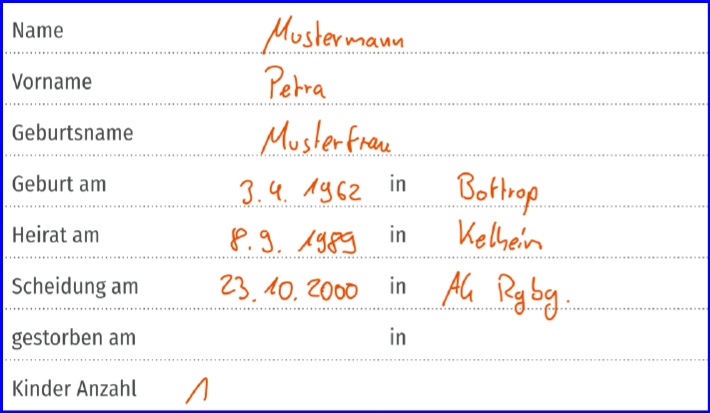 Name Mustermann
Vorname Petra
Geburtsname Musterfrau
Geburt am 3.4.1962 in Bottrop
Heirat am 8.9.1989 in Kelheim
Scheidung am 23.10.2000 in AG Rgbg.
gestorben am in
Kinder Anzahl 1